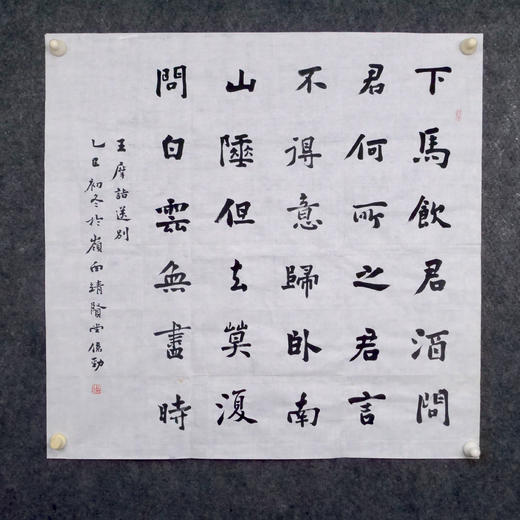 下馬飲君酒問
君何所之君言
不得意歸卧南
山陲但去莫復
問白雲無盡時
王摩詰送別
乙巳初冬於嶺靖賢堂勁